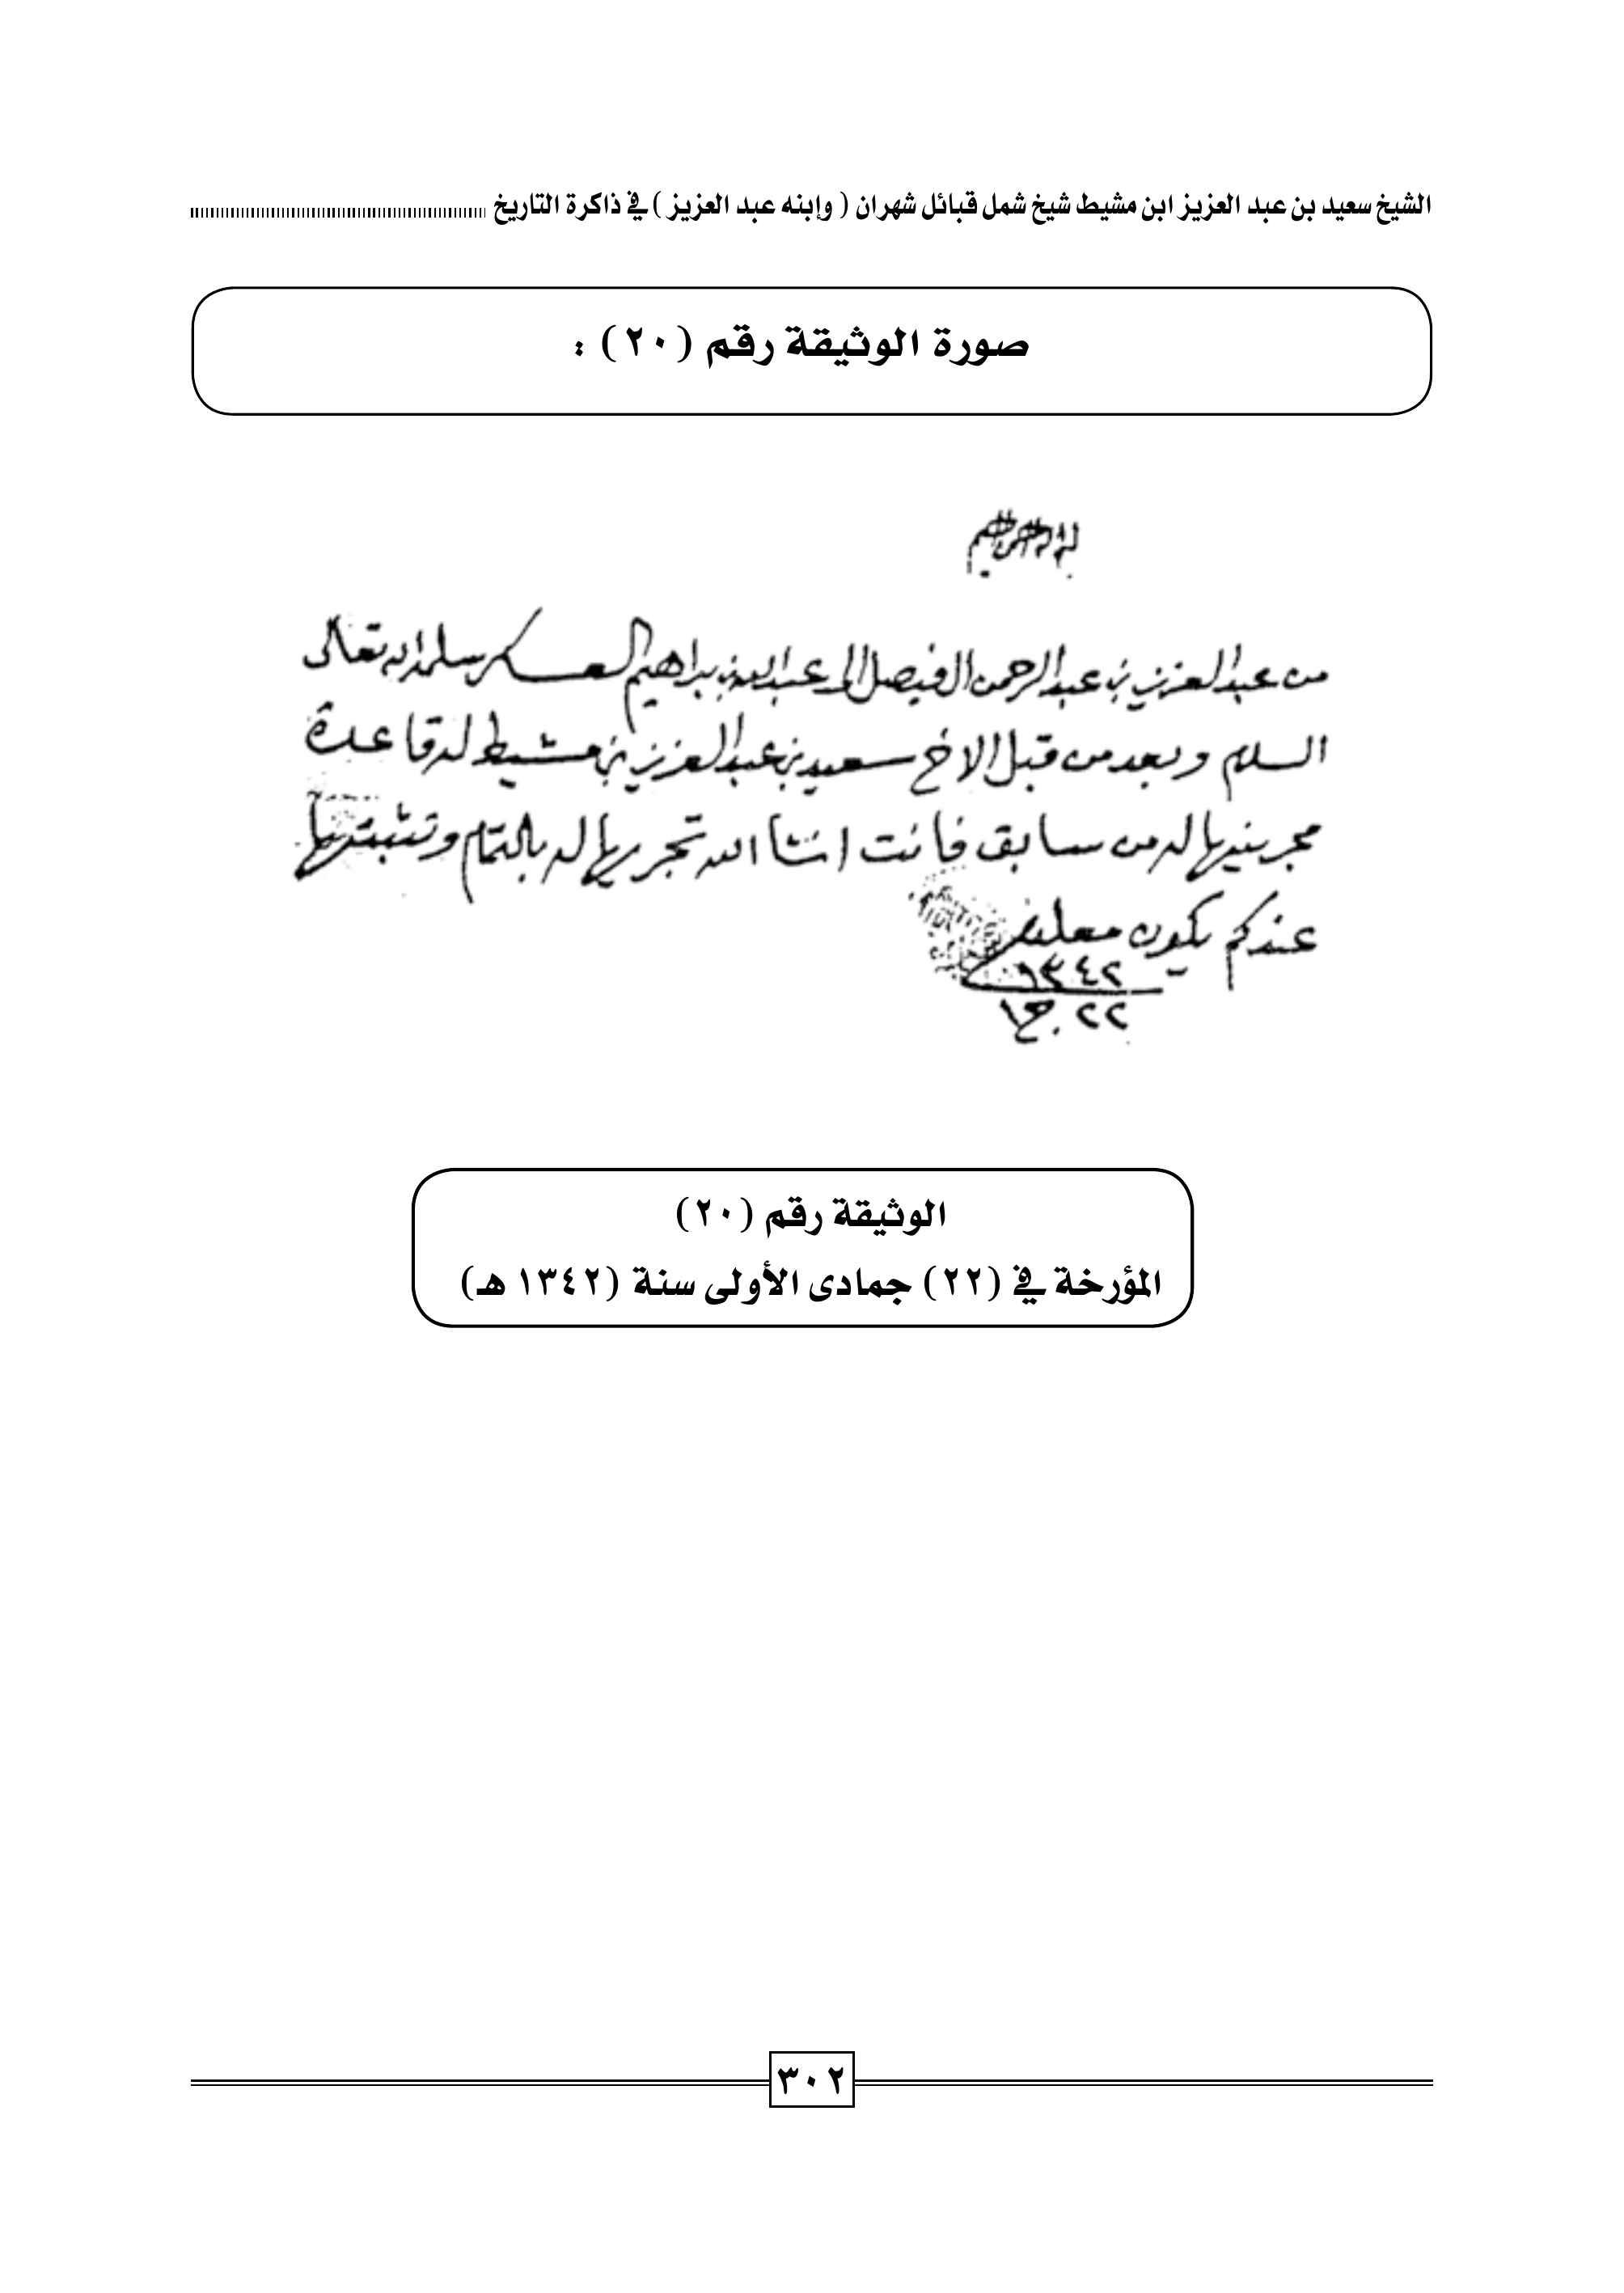 الشيخ سعيد بن عبد العزيز ابن مشيط شيخ شمل قبائل شهران ( وإبنه عبد العزيز ) في ذاكرة التاريخ
صورة الوثيقة رقم (٢٠) :
من عبد العزيز بن عبد الرحمن الفيصل الى عبد الله بن براهيم العسكر سلمه الله تعالى
السلام وبعد من قبل الاخ سعيد بن عبد العزيز بن مشيط له قاعدة
مجرينها له من سابق فانت انشا الله تجريها له بالتمام وتثبتها
عندكم يكون معلوم
١٣٤٢
٢٢ ج١
الوثيقة رقم (٢٠)
المؤرخة في (٢٢) جمادى الأولى سنة (١٣٤٢ هـ)
٣٠٢